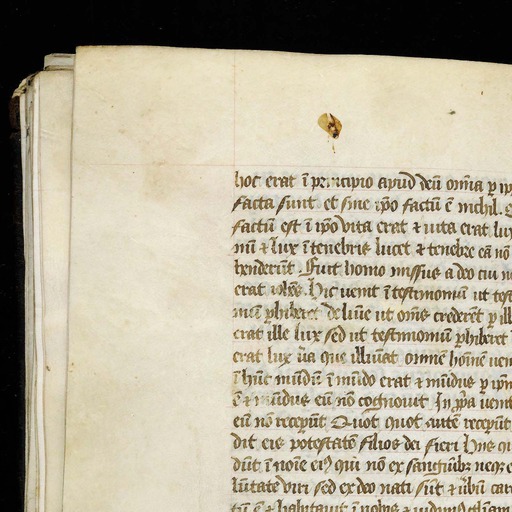 hoc erat ī principio apud deū om̄ia p ip
facta sunt. et sine ip̄o factū ē nichil. Q
factū est ī ip̄o vita erat ⁊ vita erat lux
nū ⁊ lux ī tenebris lucet ⁊ tenebre eā nō
henderūt. Fuit homo missus a deo cui n
erat ioh̄es. Hic venit ī testimoniū ut test
niū phiberet de lūīe ut om̄es crederēt p ill
erat ille lux sed ut testimoniū phiberet
erat lux ūa que illūiat omnē hoīem ven
ī hūc mūdū ī mūdo erat ⁊ mūdus p ipm
ē ⁊ mūdus eū nō cognovit In p̄pa venit
eū nō recepūt Quot quot autē recepūt
dit eis potestatē filios dei fieri Hijs qu
dūt ī noīe eiꝰ qui nō ex sanguībꝫ neqꝫ e
lūtate viri sed ex deo nati sūt ⁊ v̄bū car
tū ē ⁊ habitavit ī nobis ⁊ vidimꝰ gl̄iam